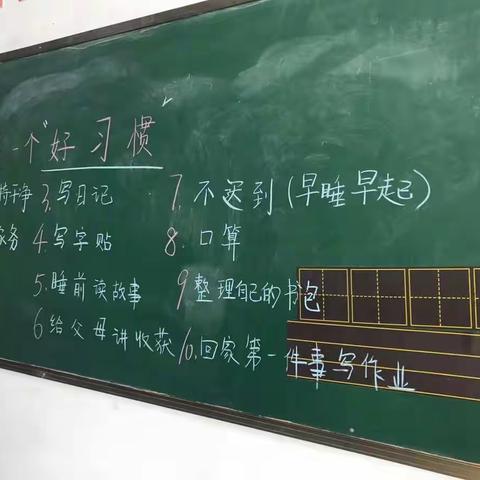 一个"好习惯"
持干净 3.写日记 7.不迟到(早睡早起)
家务 4.写字贴 8.口算
5.睡前读故事 9整理自己的书包
6给父母讲收获 10.回家第一件事写作业